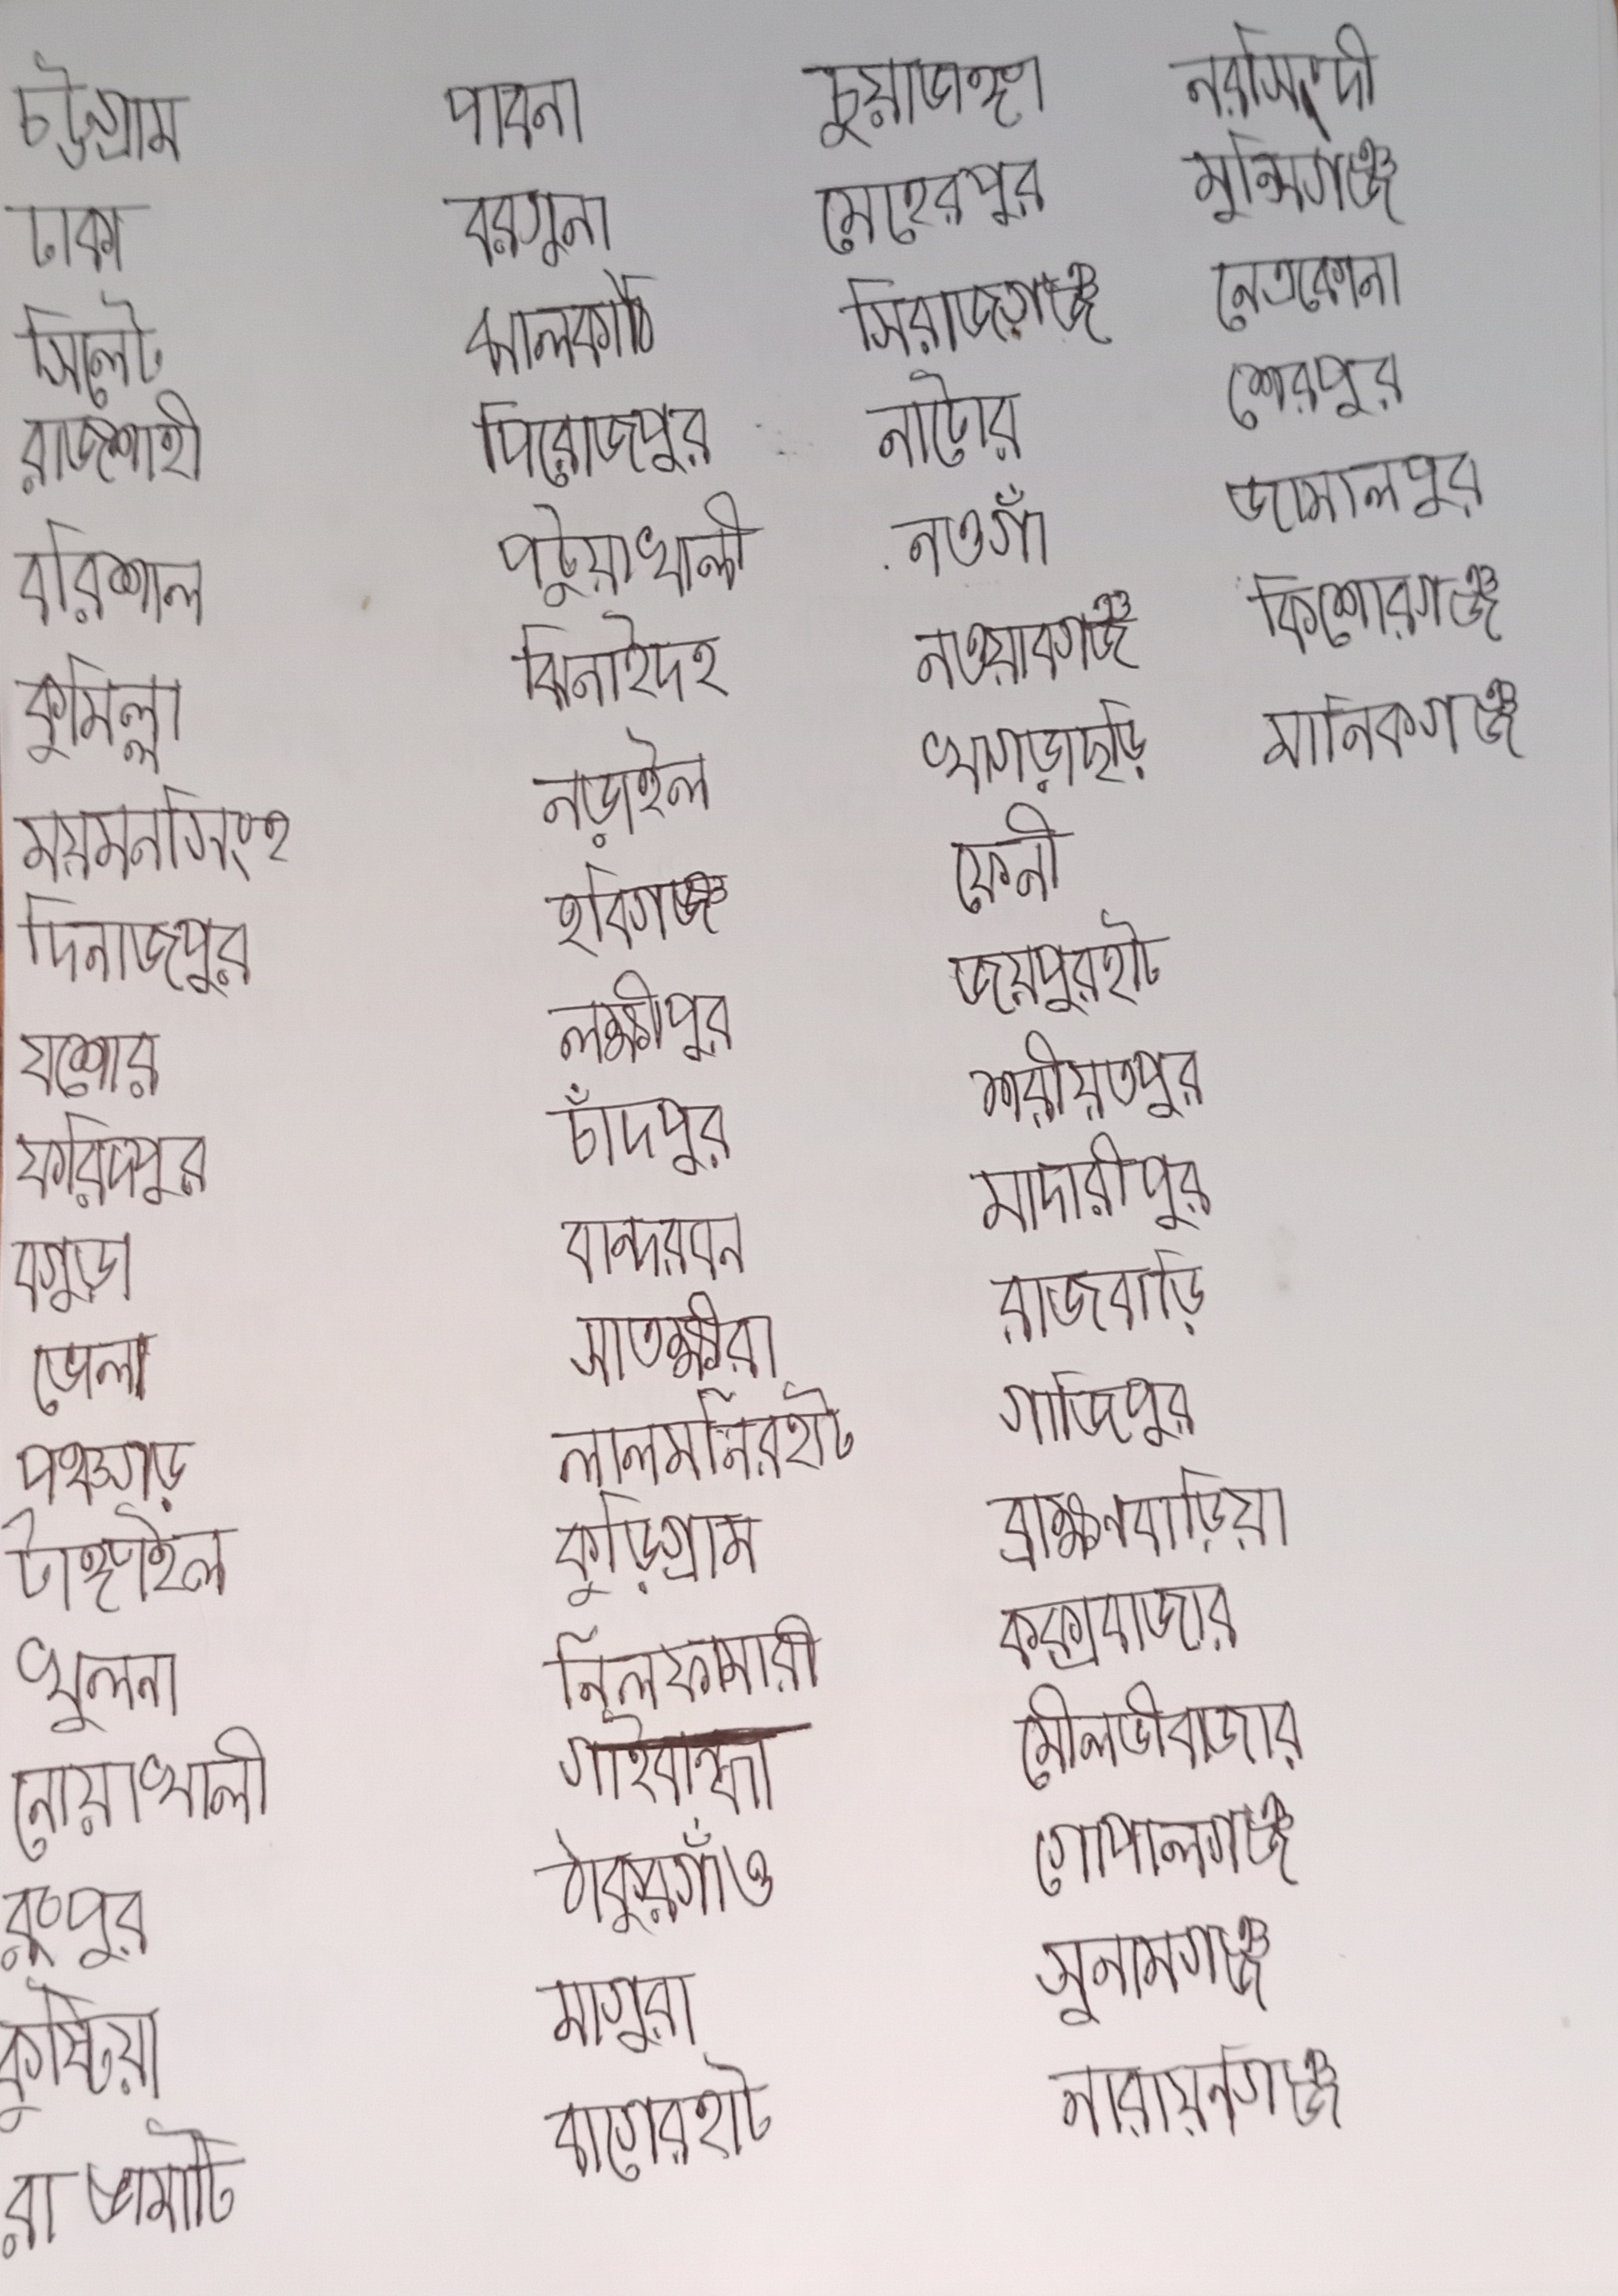 চট্টগ্রাম
ঢাকা
সিলেট
রাজশাহী
বরিশাল
কুমিল্লা
ময়মনসিংহ
দিনাজপুর
যশোর
ফরিদপুর
বগুড়া
ভোলা
পঞ্চগড়
টাঙ্গাইল
খুলনা
নোয়াখালী
রংপুর
কুষ্টিয়া
রাঙ্গামাটি
পাবনা
বরগুনা
ঝালকাঠি
পিরোজপুর
পটুয়াখালী
ঝিনাইদহ
নড়াইল
হবিগঞ্জ
লক্ষীপুর
চাঁদপুর
বান্দরবন
সাতক্ষীরা
লালমনিরহাট
কুড়িগ্রাম
নিলফামারী
গাইবান্ধা
ঠাকুরগাঁও
মাগুরা
বাগেরহাট
চুয়াডাঙ্গা
মেহেরপুর
সিরাজগঞ্জ
নাটোর
নওগাঁ
নওয়াবগঞ্জ
খাগড়াছড়ি
ফেনী
জয়পুরহাট
শরীয়তপুর
মাদারীপুর
রাজবাড়ি
গাজিপুর
ব্রাক্ষনবাড়িয়া
কক্সবাজার
মৌলভীবাজার
গোপালগঞ্জ
সুনামগঞ্জ
নারায়নগঞ্জ
নরসিংদী
মুন্সিগঞ্জ
নেত্রকোনা
শেরপুর
জামালপুর
কিশোরগঞ্জ
মানিকগঞ্জ